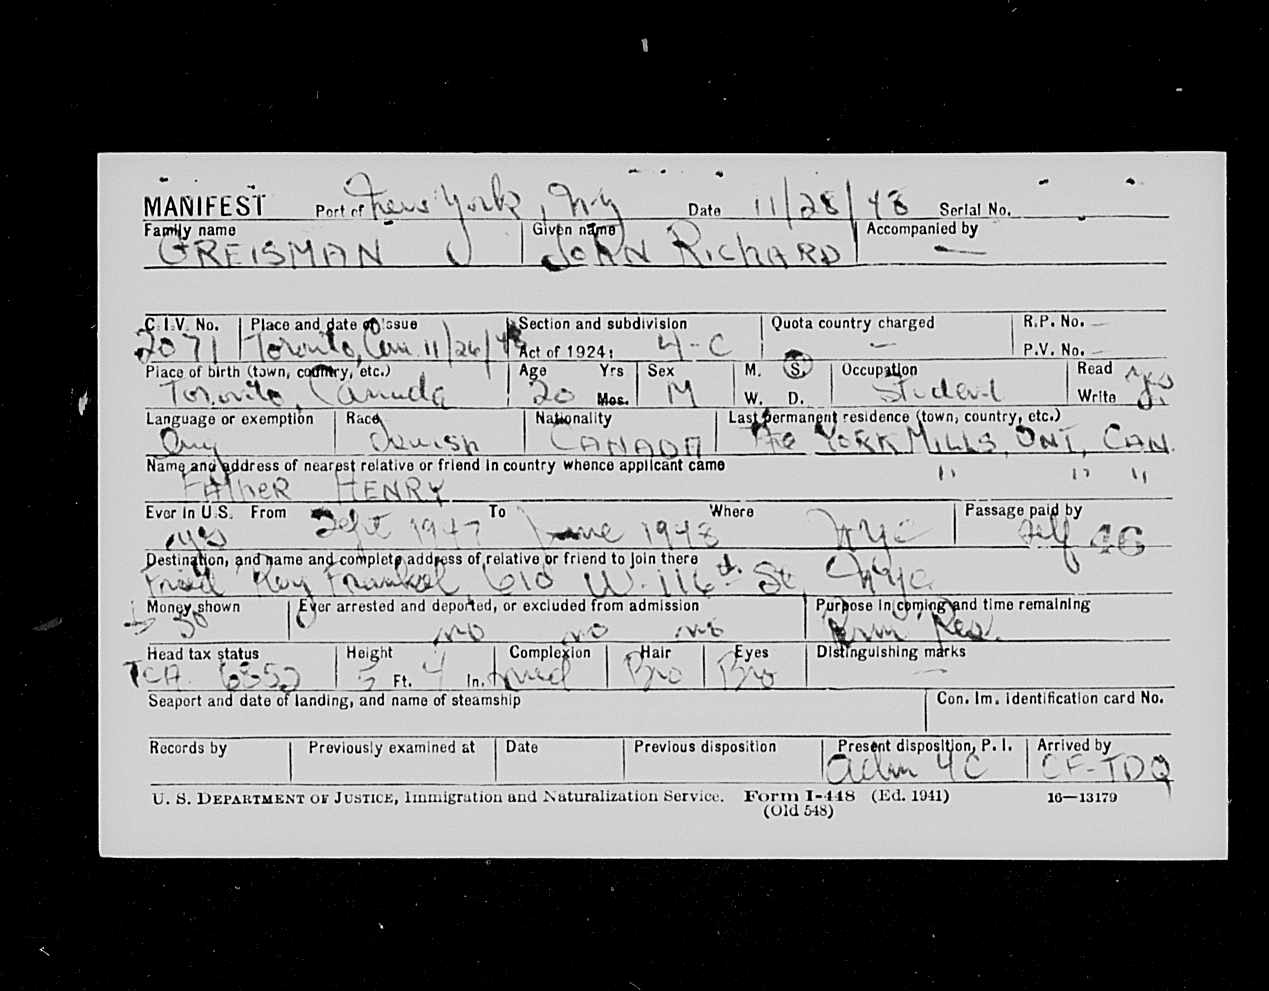 MANIFEST Port of New York, NY Date 11/28/48 Serial No.
Family name Given name Accompanied by
GREISMAN JOHN RICHARD —
C.I.V. No. Place and date of issue Section and subdivision Quota country charged R.P. No. —
2071 Toronto, Can 11/26/48 Act of 1924: 4-C — P.V. No. —
Place of birth (town, country, etc.) Age Yrs Sex M. S. Occupation Read yes
Toronto, Canada 20 Mos. M W. D. Student Write
Language or exemption Race Nationality Last permanent residence (town, country, etc.)
Eng Jewish CANADA YORK MILLS, ONT, CAN.
Name and address of nearest relative or friend in country whence applicant came
FATHER HENRY " " "
Ever in U.S. From To Where Passage paid by
yes Sept 1947 June 1948 NYC self 46
Destination, and name and complete address of relative or friend to join there
Friend Key Frankel 610 W. 116th St NYC
Money shown Ever arrested and deported, or excluded from admission Purpose in coming and time remaining
$ 30 no no no Perm Res.
Head tax status Height Complexion Hair Eyes Distinguishing marks
TCA 6852 5 Ft. 4 In. med Bro Bro —
Seaport and date of landing, and name of steamship Con. Im. Identification card No.
Records by Previously examined at Date Previous disposition Present disposition, P. I. Arrived by
adm 4C CF-TDQ
U. S. DEPARTMENT OF JUSTICE, Immigration and Naturalization Service. Form I-448 (Ed. 1941) 16—13179
(Old 548)